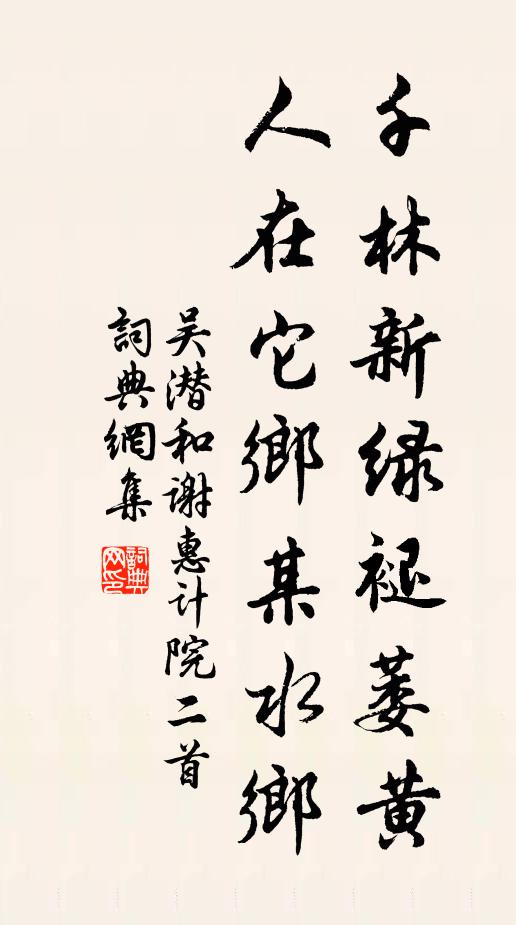 千林新緑褪萎黄
人在它鄉某水鄉
吴潜和谢惠计院二首
詞典網集
詞典网印